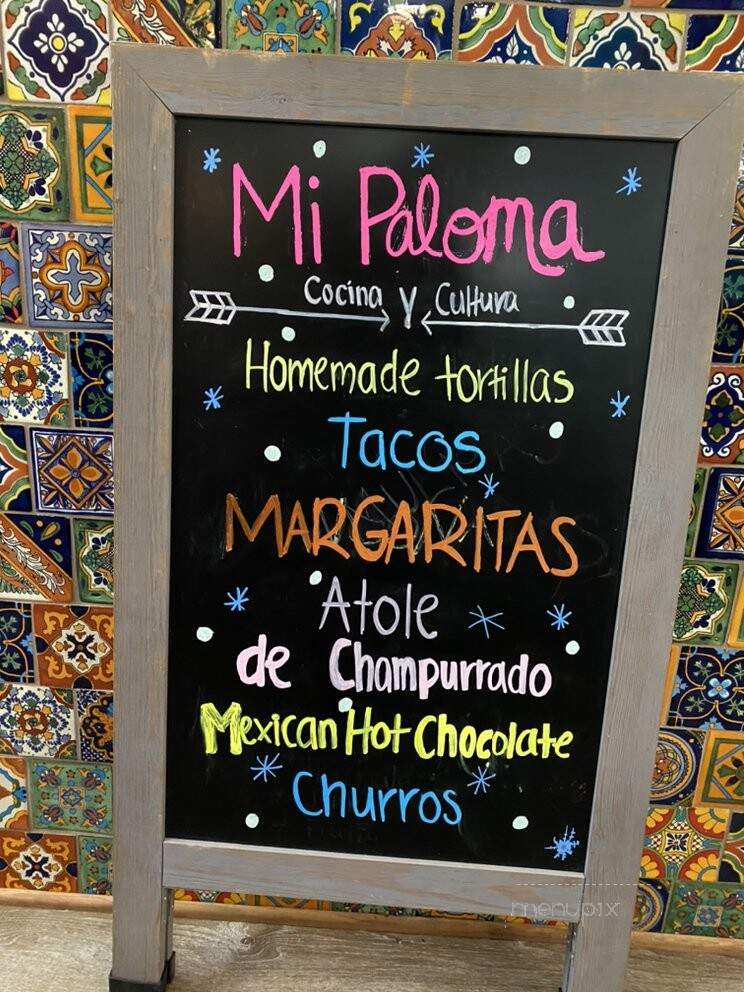 Mi Paloma
Cocina y Cultura
Homemade tortillas
Tacos
MARGARITAS
Atole
de Champurrado
Mexican Hot Chocolate
Churros
menupix